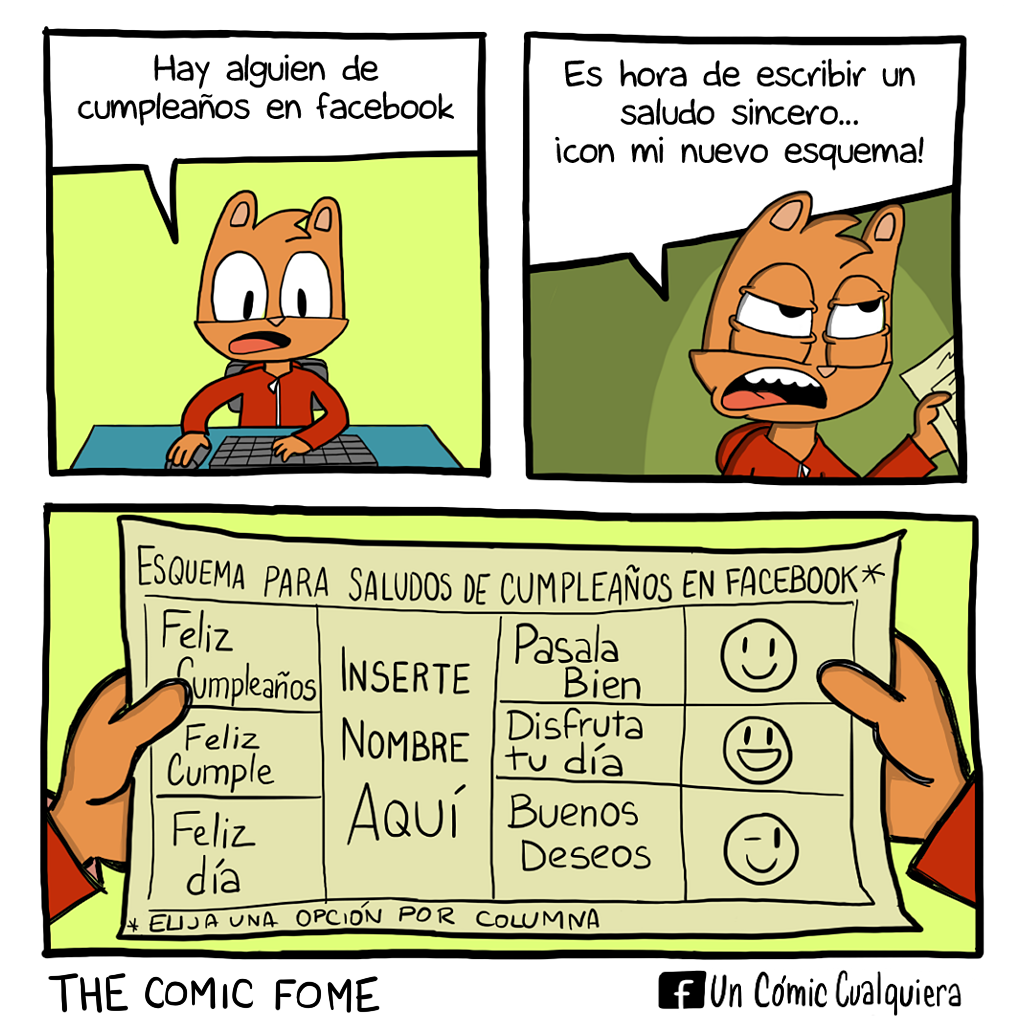 Hay alguien de
cumpleaños en facebook
Es hora de escribir un
saludo sincero...
¡con mi nuevo esquema!
ESQUEMA PARA SALUDOS DE CUMPLEAÑOS EN FACEBOOK*
Feliz
Cumpleaños
Feliz
Cumple
Feliz
día
INSERTE
NOMBRE
AQUÍ
Pasala
Bien
Disfruta
tu día
Buenos
Deseos
* ELIJA UNA OPCIÓN POR COLUMNA
THE COMIC FOME
f Un Cómic Cualquiera